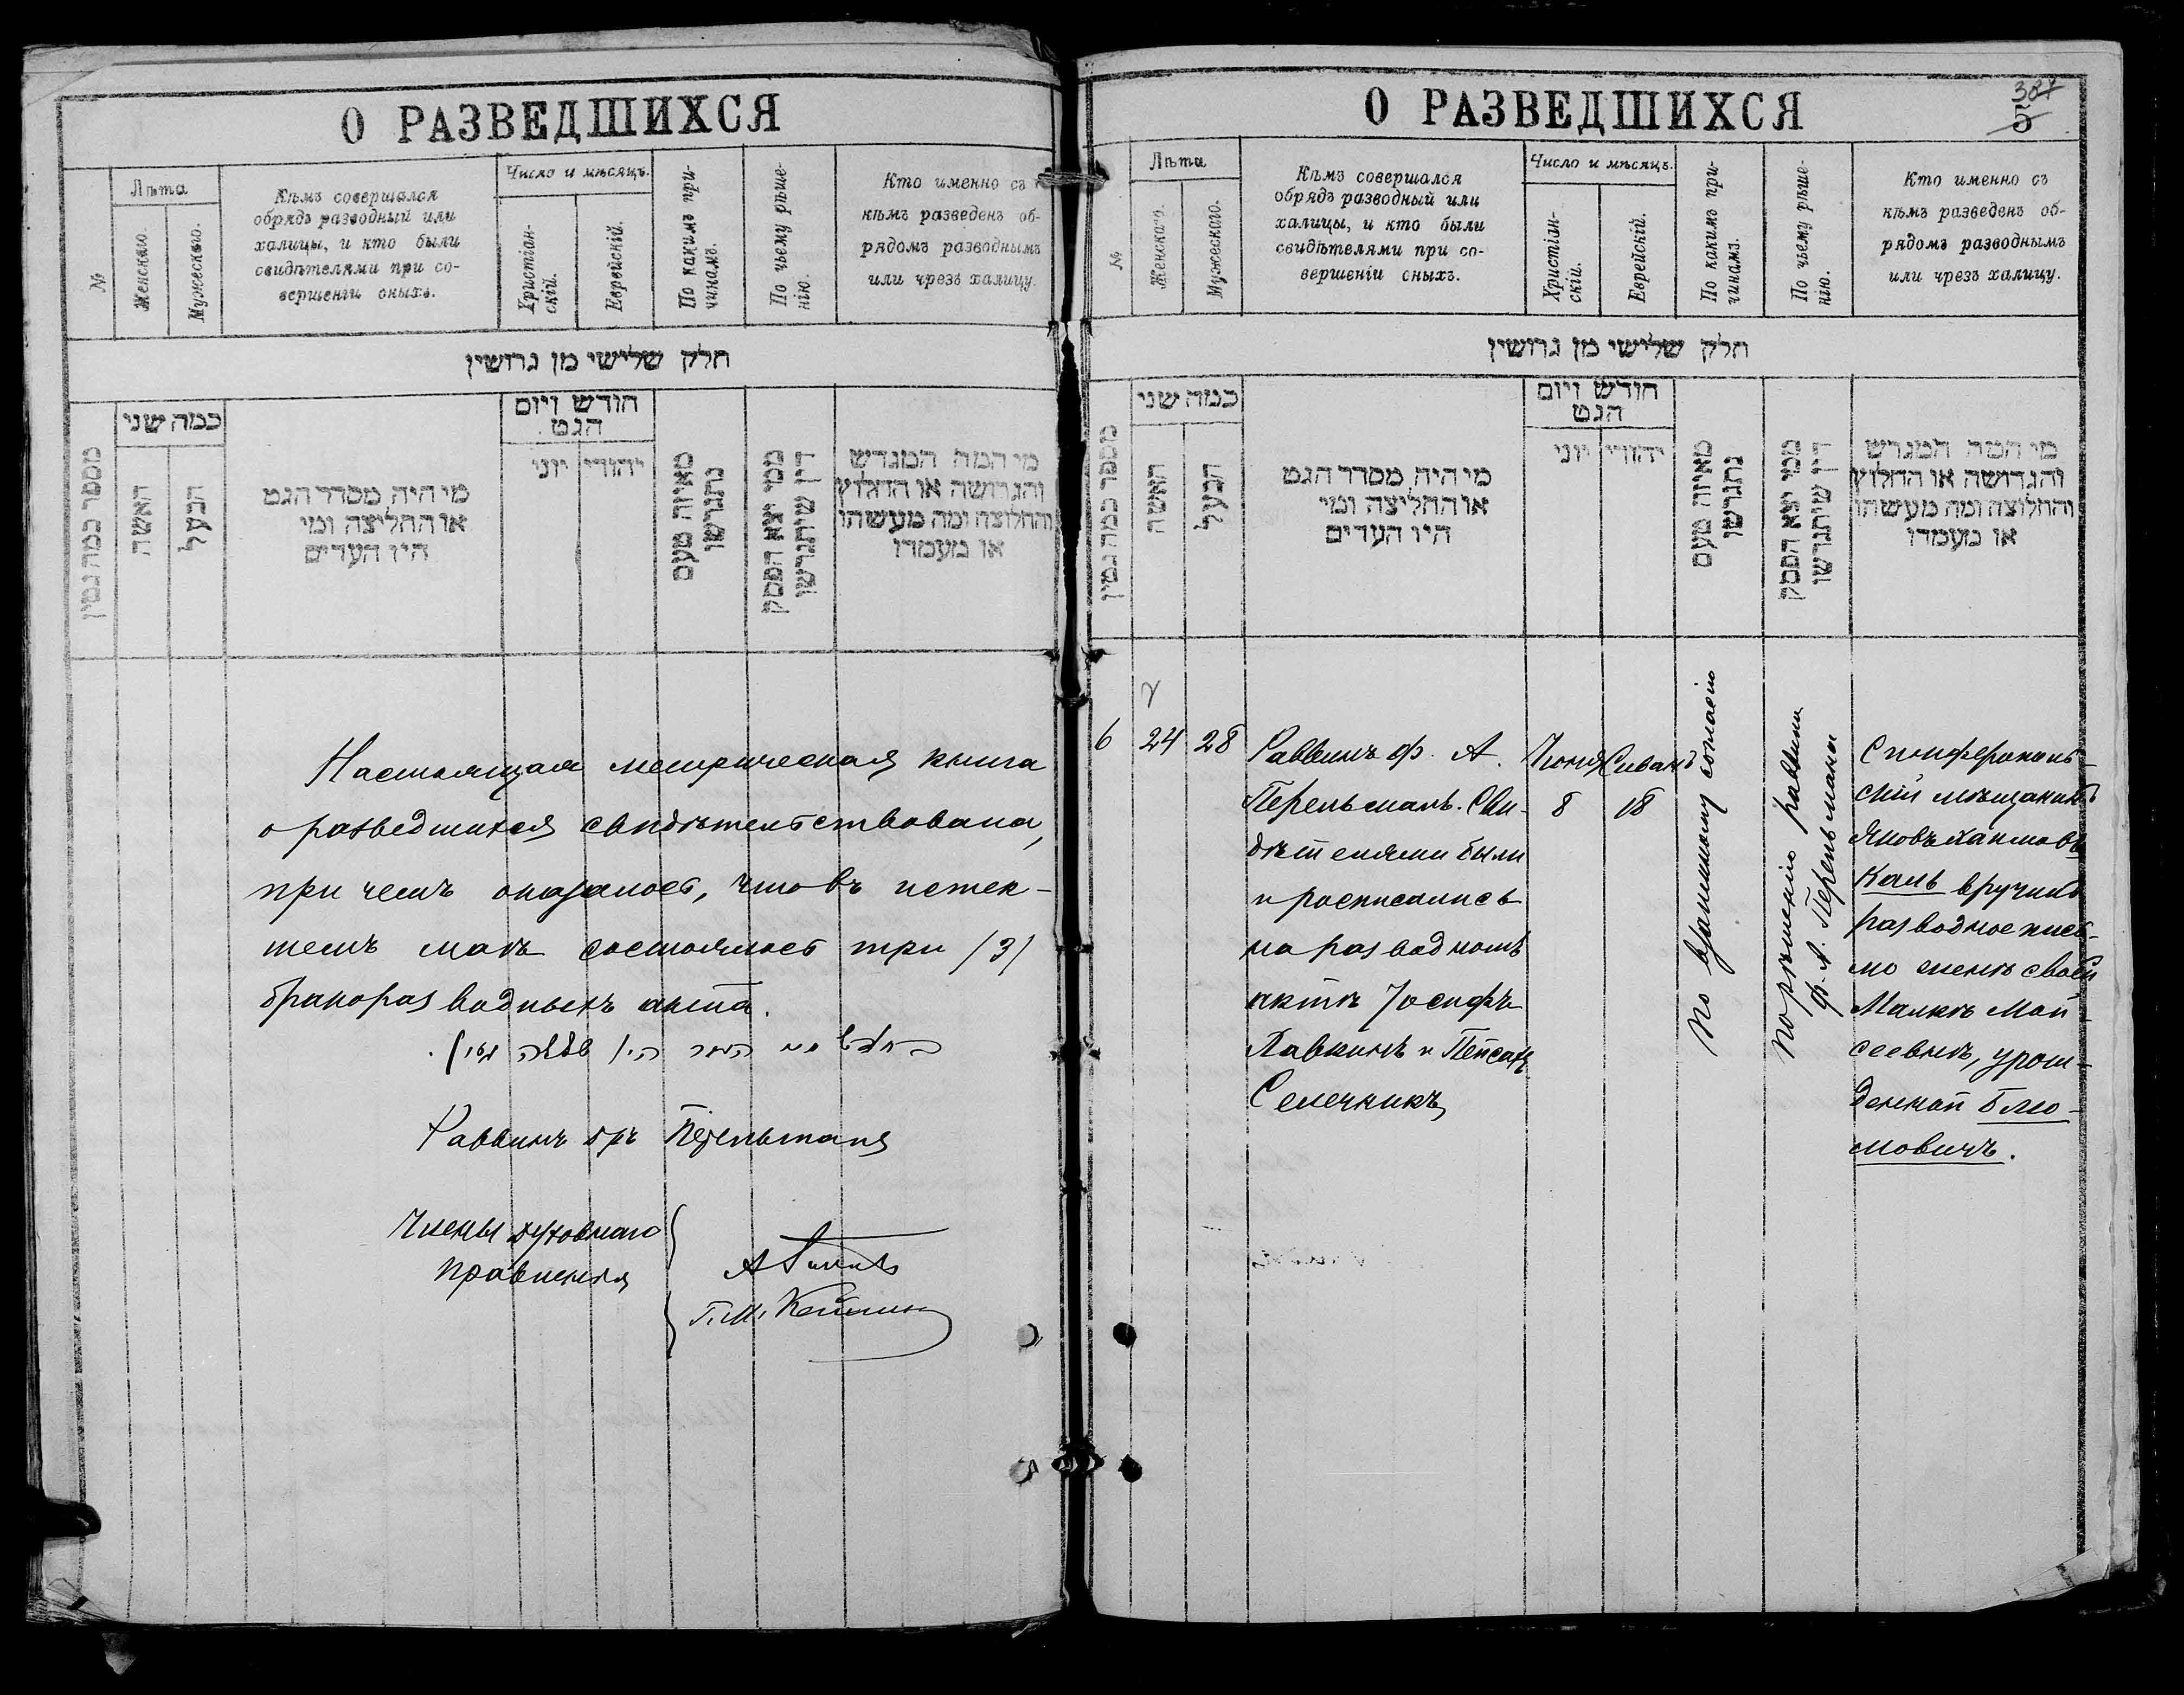 О РАЗВЕДШИХСЯ
№
Лѣта
Женскаго.
Мужескаго.
Кѣмъ совершался
обрядъ разводный или
халицы, и кто были
свидѣтелями при со-
вершеніи оныхъ.
Число и мѣсяцъ.
Христіан-
скій.
Еврейскій.
По какимъ при-
чинамъ.
По чьему рѣше-
нію.
Кто именно съ
кѣмъ разведенъ об-
рядомъ разводнымъ
или чрезъ халицу.
חלק שלישי מן גרושין
מספר כמה גטין
כמה שני
האשה
הבעל
מי היה מסדר הגט
או החליצה ומי
היו העדים
חודש ויום
הגט
יוני
יהודי
מאיזה טעם
נתגרשו
ממי יצא הפסק
דין שיתגרשו
מי המה המגרש
והגרושה או החלוץ
והחלוצה ומה מעשהו
או מעמדו
Настоящая метрическая книга
о разведшихся свидѣтельствована,
при чемъ оказалось, что въ истек-
шемъ маѣ состоялось три /3/
бракоразводныхъ акта.
Раввинъ дръ Перельманъ
Члены духовнаго
правленія
Г. М.
О РАЗВЕДШИХСЯ
387
5
№
Лѣта
Женскаго.
Мужескаго.
Кѣмъ совершался
обрядъ разводный или
халицы, и кто были
свидѣтелями при со-
вершеніи оныхъ.
Число и мѣсяцъ.
Христіан-
скій.
Еврейскій.
По какимъ при-
чинамъ.
По чьему рѣше-
нію.
Кто именно съ
кѣмъ разведенъ об-
рядомъ разводнымъ
или чрезъ халицу.
חלק שלישי מן גרושין
מספר כמה גטין
כמה שני
האשה
הבעל
מי היה מסדר הגט
או החליצה ומי
היו העדים
חודש ויום
הגט
יוני
יהודי
מאיזה טעם
נתגרשו
ממי יצא הפסק
דין שיתגרשו
מי המה המגרש
והגרושה או החלוץ
והחלוצה ומה מעשהו
או מעמדו
6
24
28
Раввинъ ф. А.
Перельманъ. Сви-
дѣтелями были
и росписались
на разводномъ
актѣ Іосифъ
Лавкинъ и Пейсахъ
Семечникъ
Іюня
8
Сиванъ
18
По взаимному согласію
По рѣшенію раввина
ф. А. Перельмана
Симферополь-
скій мѣщанинъ
Яковъ Хаимовъ
Каль вручилъ
разводное пись-
мо женѣ своей
Малкѣ Мой-
сеевнѣ, урож-
денной Блю-
мовичъ.